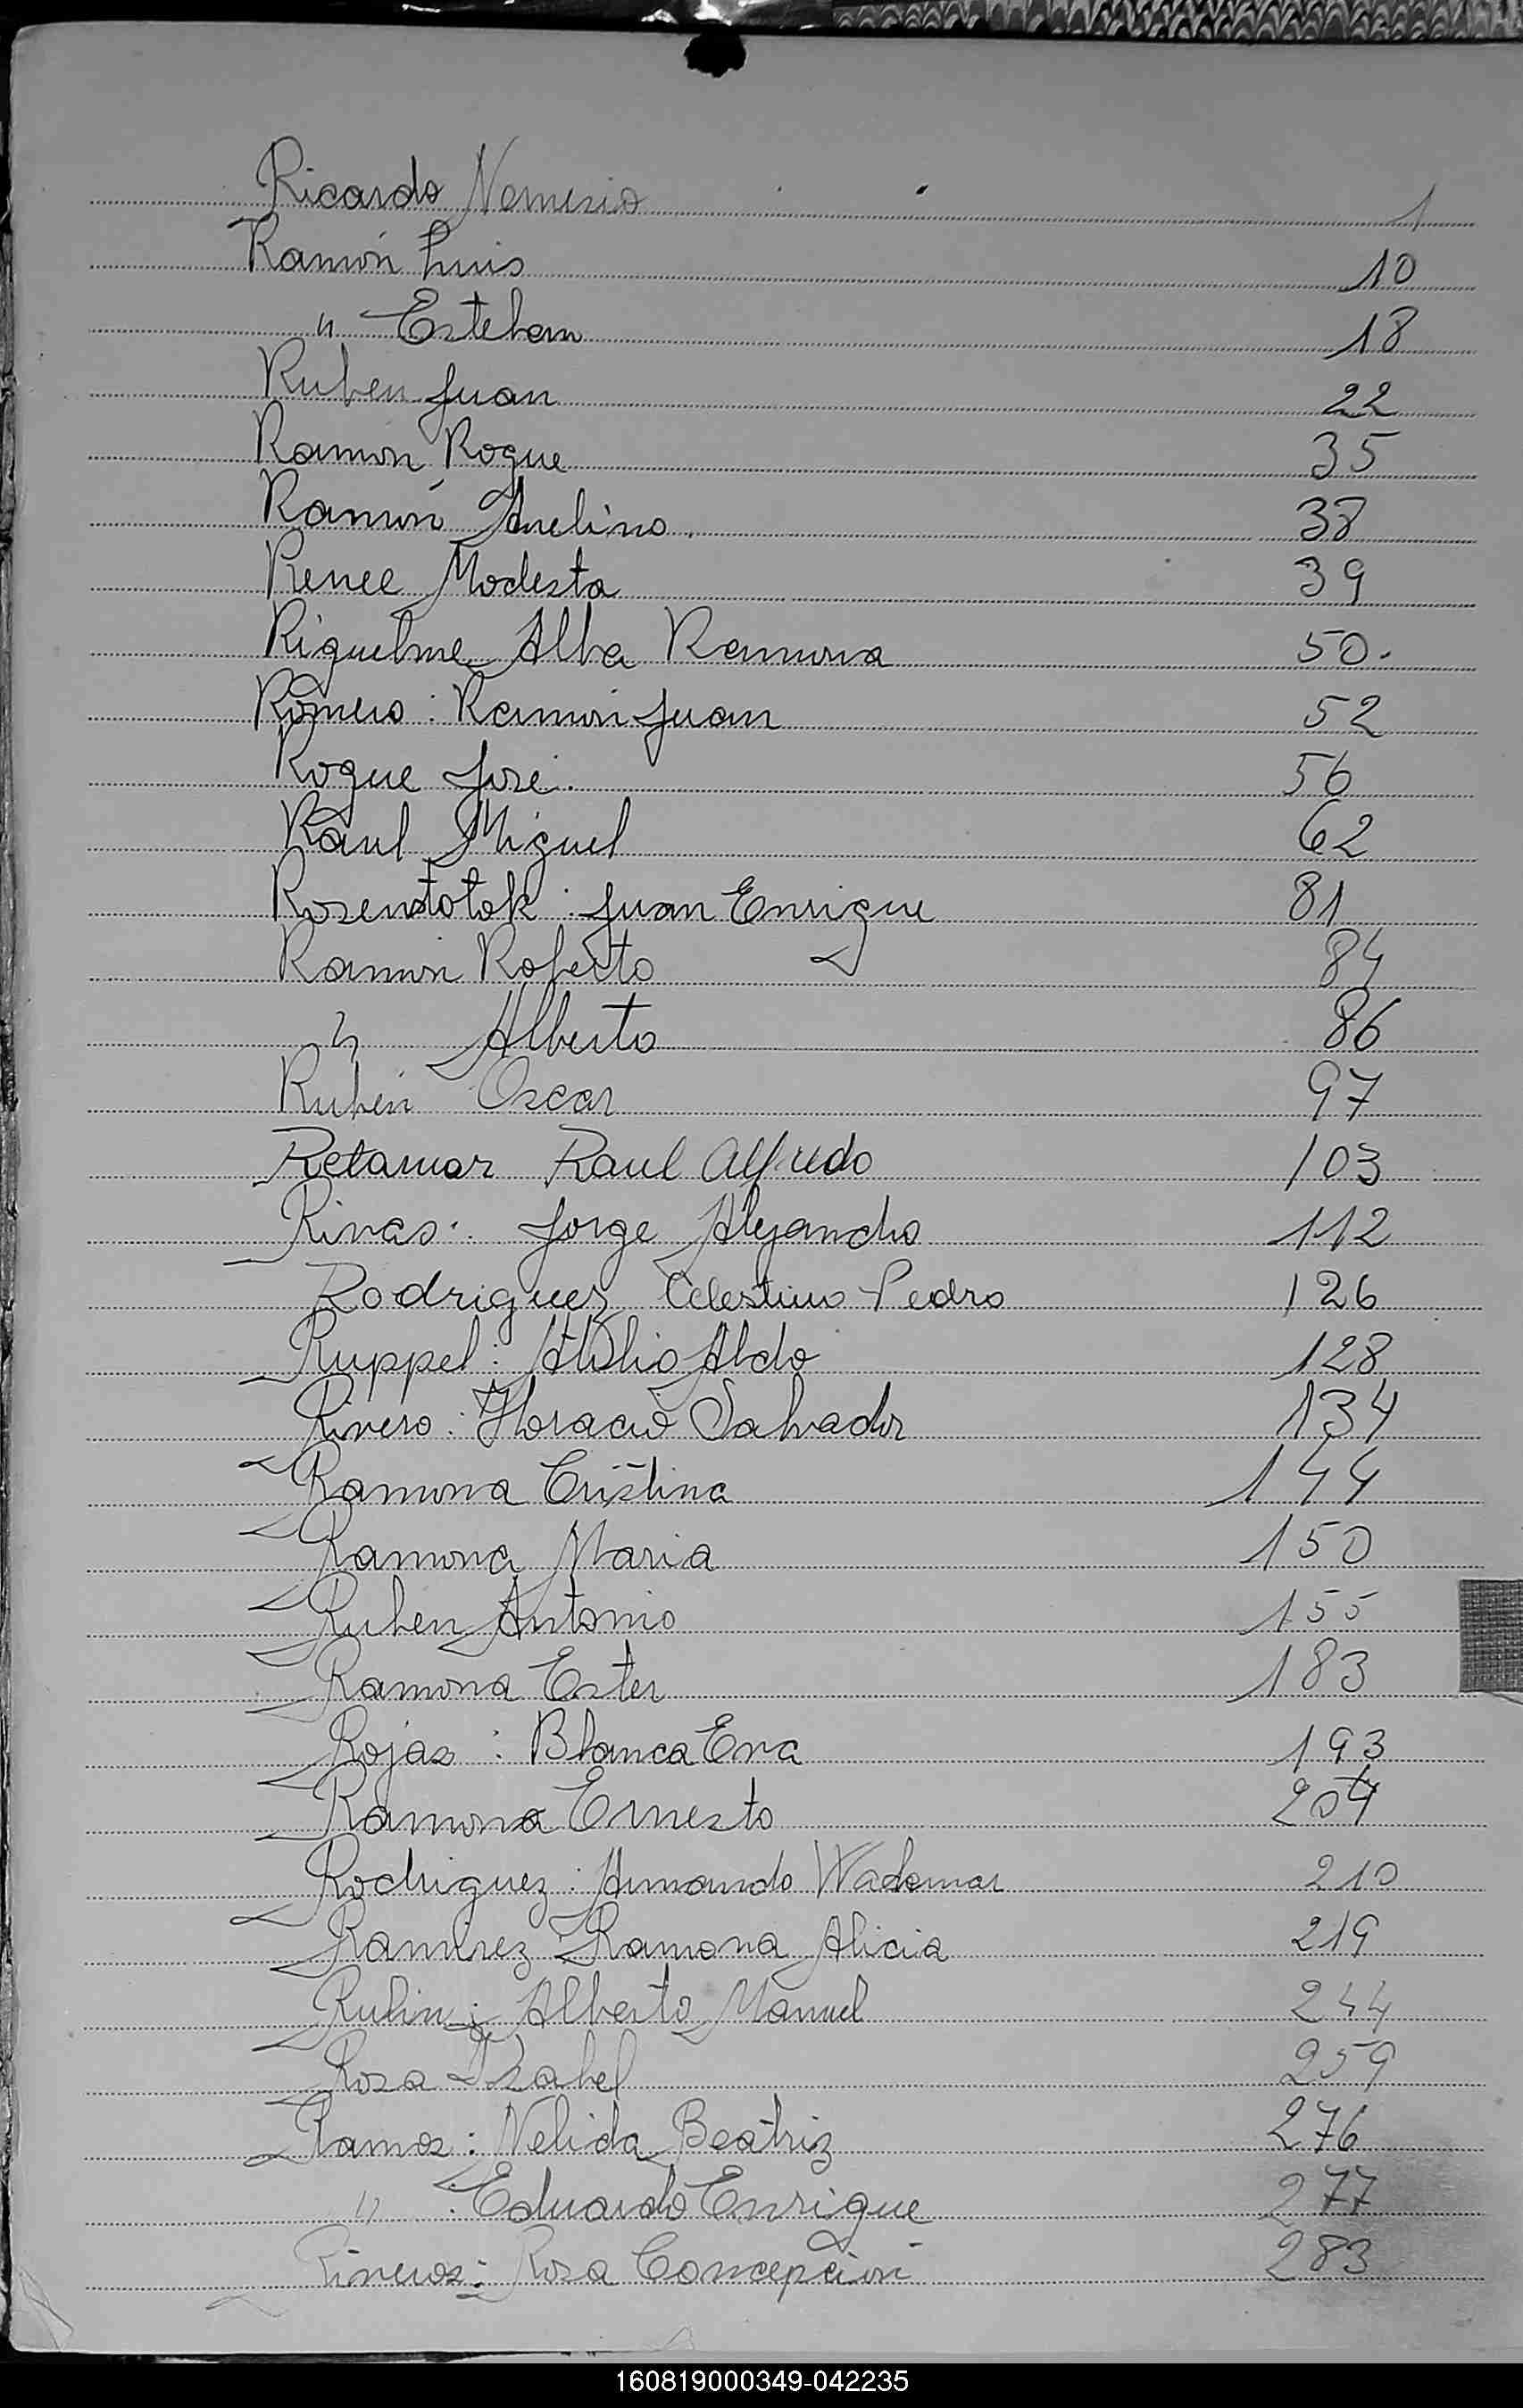 Ricardo Nemesio 1
Ramón Luis 10
" Esteban 18
Ruben Juan 22
Ramón Roque 35
Ramón Avelino 38
Renee Modesta 39
Riquelme Alba Ramona 50.
Romero : Ramón Juan 52
Roque José. 56
Raul Miguel 62
Rosenstotok : Juan Enrique 81
Ramón Roberto 84
" Alberto 86
Rubén Oscar 97
Retamar Raul Alfredo 103
Rivas : Jorge Alejandro 112
Rodriguez Celestino Pedro 126
Ruppel : Atilio Aldo 128
Rivero : Horacio Salvador 134
Ramona Cristina 144
Ramona Maria 150
Ruben Antonio 155
Ramona Ester 183
Rojas : Blanca Eva 193
Ramona Ernesto 204
Rodriguez : Armando Wademar 210
Ramirez : Ramona Alicia 219
Rubin : Alberto Manuel 244
Rosa Isabel 259
Ramos : Nelida Beatriz 276
" : Eduardo Enrique 277
Riveros : Rosa Concepción 283
160819000349-042235